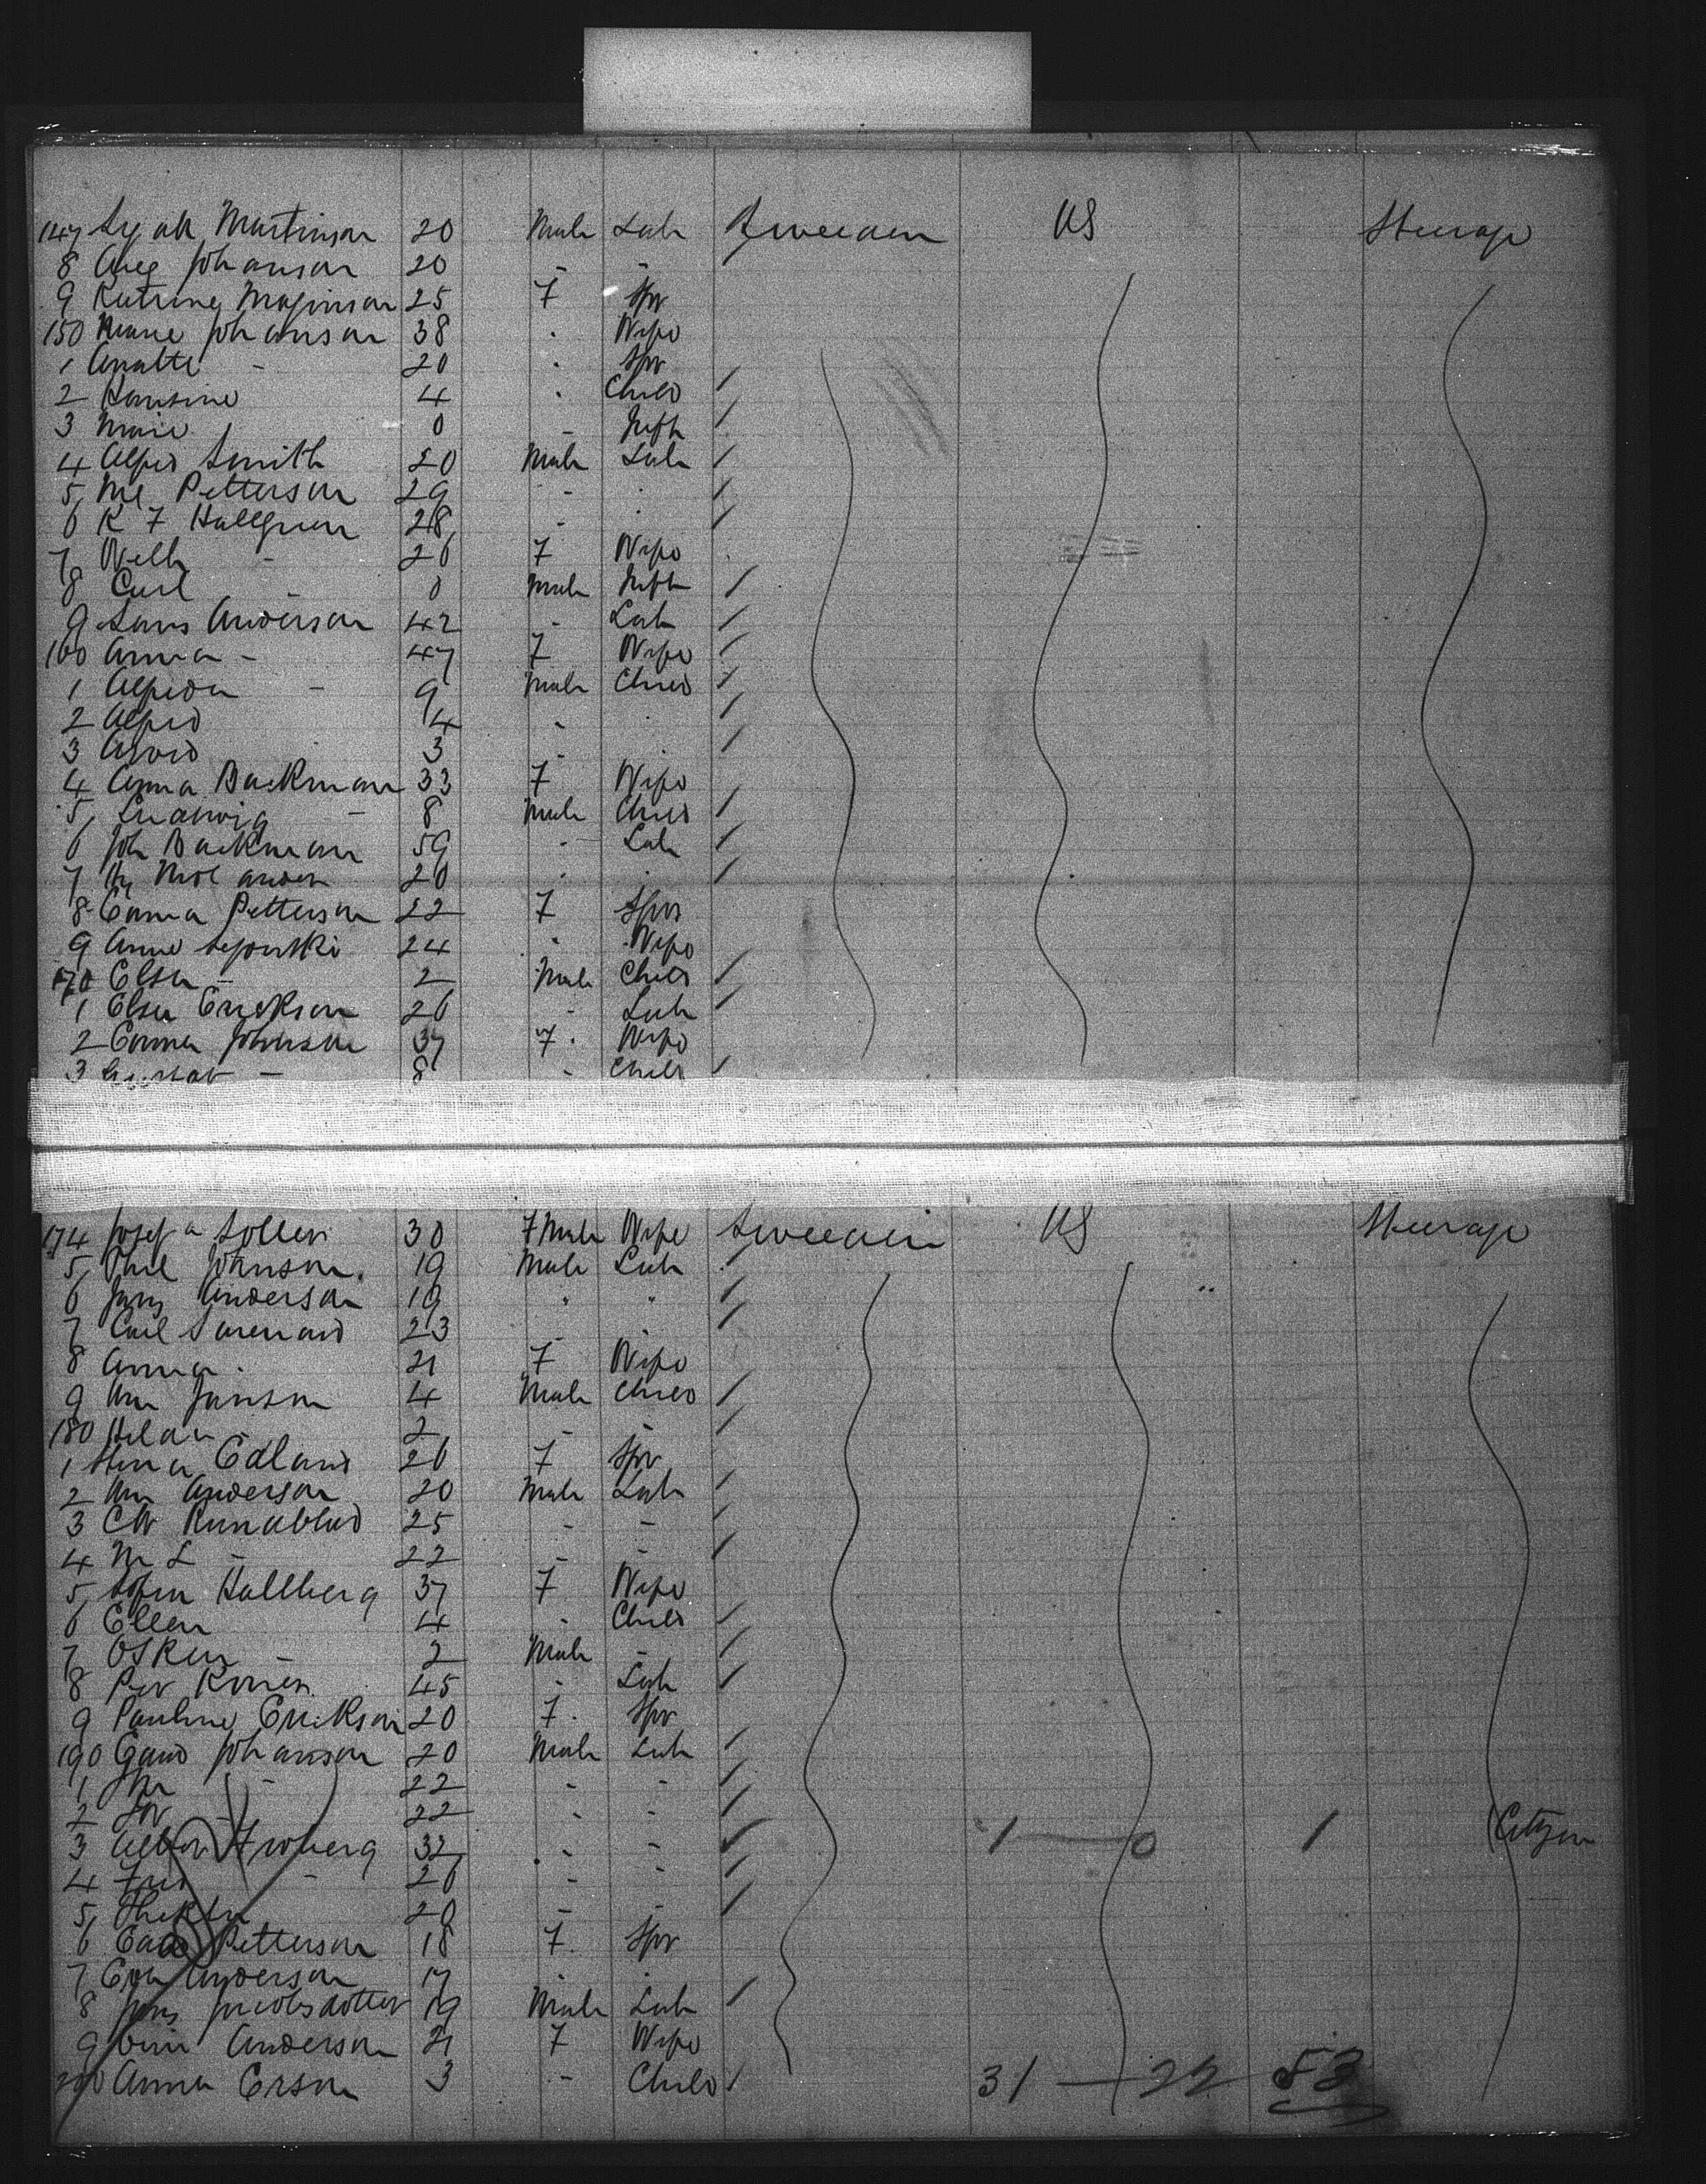 147 Martinson 20 Male Lab Sweeden US Steerage
8 Aug Johanson 20 - -
9 Katrine Maginson 25 F Spr
150 Marie Johanson 38 . Wife
1 Anatte - 20 . Spr
2 Hansine 4 . Child
3 Marie 0 - Inft
4 Alfred Smith 20 Male Lab
5 Petterson 29 - .
6 K F Hallgren 28 - .
7 - 26 F Wife
8 Carl - 0 Male Inft
9 Lars Anderson 42 - Lab
160 Anna - 47 F Wife
1 - 9 Male Child
2 Alfred 4 - .
3 Arvid 3 - .
4 Anna Backman 33 F Wife
5 Ludwig - 8 Male Child
6 Joh Backman 59 - Lab
7 Molander 26 . .
8 Emma Petterson 22 F Spr
9 Anna 24 . Wife
170 Elsa - 2 Male Child
1 Elsa Erickson 26 - Lab
2 Emma Johnson 37 F . Wife
3 Gustav - 8 - Child
174 Josefa 30 F Male Wife Sweeden US Steerage
5 Johnson 19 Male Lab
6 Anderson 19 " "
7 Carl 23 . .
8 Anna . 21 F Wife
9 Wm Janson 4 Male Child
180 - 2 - -
1 Edland 26 F Spr
2 Wm Anderson 20 Male Lab
3 CW 25 - -
4 M L - 22 - -
5 Hallberg 37 F Wife
6 Ellen 4 - Child
7 Oskar - 2 Male -
8 Per 45 . Lab
9 Pauline Erikson 20 F . Spr
190 Johanson 20 Male Lab
1 - 22 - -
2 - 22 . .
3 Froberg 32 . - 1 — 0 1 Citizen
4 - 26 - -
5 Thekla 20 - -
6 Petterson 18 F . Spr
7 Anderson 17 . .
8 Jacobsdotter 19 Male Lab
9 Anderson 21 F Wife
200 Anna Erson 3 - Child 31 — 22 53